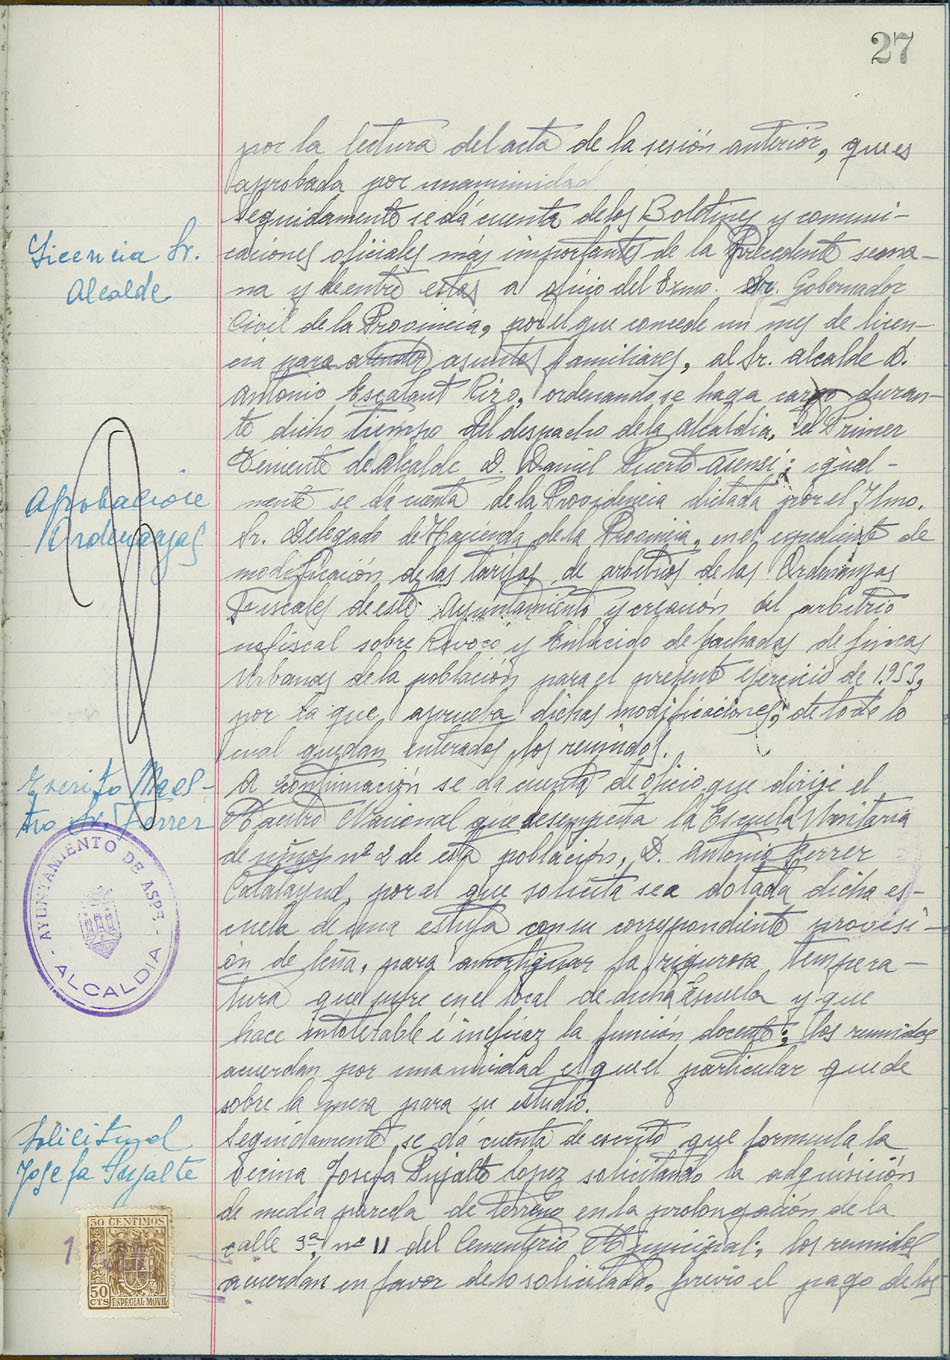 27
por la lectura del acta de la sesión anterior, que es
aprobada por unanimidad
Seguidamente se dá cuenta de los Boletines y comuni-
Licencia Sr.
Alcalde
caciones oficiales más importantes de la precedente sema-
na y de entre estas a oficio del Exmo. Sr. Gobernador
Civil de la Provincia, por el que concede un mes de licen-
cia para atender asuntos familiares, al Sr. Alcalde D.
Antonio Escalant Rizo, ordenando se haga cargo duran-
te dicho tiempo del despacho de la Alcaldia, el Primer
Teniente de Alcalde D. Daniel Puerto Asensi; igual-
Aprobacion
Ordenanzas
mente se da cuenta de la Providencia dictada por el Ilmo.
Sr. Delegado de Hacienda de la Provincia, en el expediente de
modificación de las tarifas de arbitrios de las Ordenanzas
Fiscales de este Ayuntamiento y creación del arbitrio
no fiscal sobre Revoco y Enlucido de fachadas de fincas
Urbanas de la población para el presente ejercicio de 1.953,
por la que aprueba dichas modificaciones; de todo lo
cual quedan enterados los reunidos.
Escrito Maes-
tro Sr. Ferrer
A continuación se da cuenta de oficio que dirige el
Maestro Nacional que desempeña la Escuela Unitaria
de niños nº 2 de esta población, D. Antonio Ferrer
Calatayud, por el que solicita sea dotada dicha es-
cuela de una estufa con su correspondiente provisi-
ón de leña, para amortiguar la rigurosa tempera-
tura que sufre en el local de dicha Escuela y que
hace intolerable é ineficaz la función docente; los reunidos
acuerdan por unanimidad el que el particular quede
sobre la mesa para su estudio.
AYUNTAMIENTO DE ASPE
- ALCALDIA -
Solicitud
Josefa Pujalte
Seguidamente se dá cuenta de escrito que formula la
vecina Josefa Pujalte López solicitando la adquisición
de media pareda de terreno en la prolongación de la
calle 3ª, nº 11 del Cementerio Municipal; los reunidos
acuerdan en favor de lo solicitado, previo el pago de los
50 CENTIMOS
50
CTS
ESPECIAL MOVIL